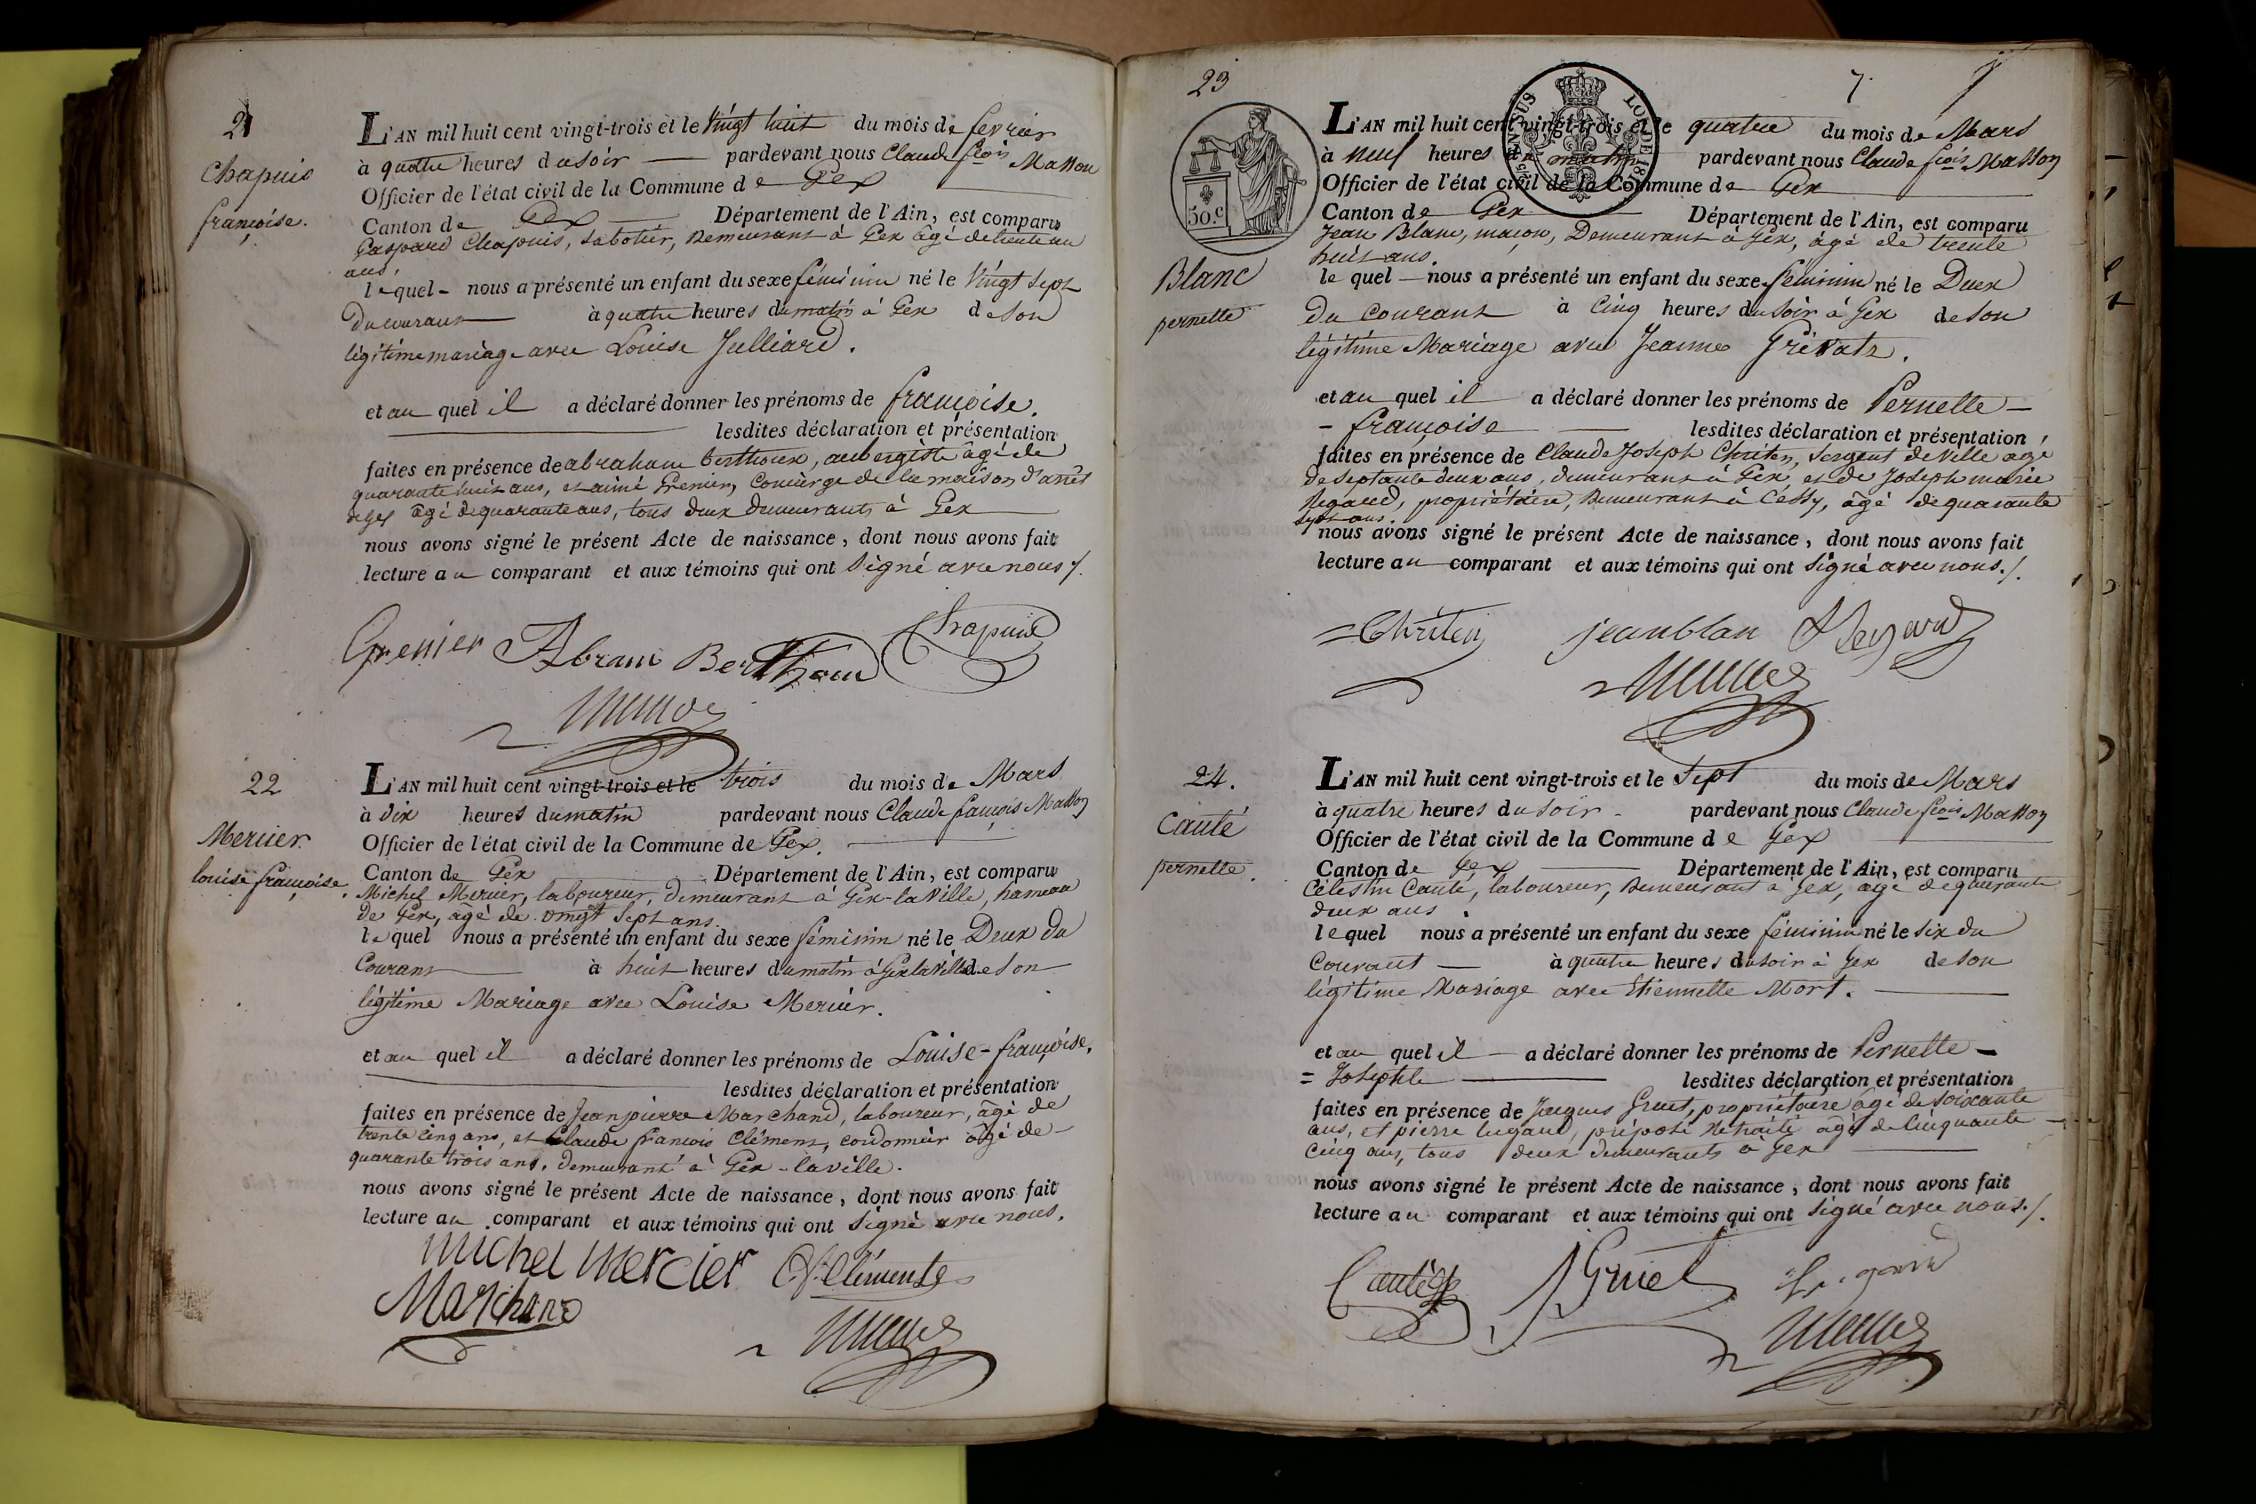 21
Chapuis
françoise.
L'AN mil huit cent vingt-trois et le Vingt huit du mois de fevrier
à quatre heures du soir pardevant nous Claude fcois Masson
Officier de l'état civil de la Commune de Gex
Canton de Gex Département de l'Ain, est comparu
Gaspard Chapuis, sabotier, demeurant à Gex âgé de trente un
ans,
lequel nous a présenté un enfant du sexe féminin né le Vingt sept
du courant à quatre heures du matin à Gex de son
légitime mariage avec Louise Julliard.
et au quel il a déclaré donner les prénoms de françoise.
lesdites déclaration et présentation
faites en présence de abraham berthoux, aubergiste âgé de
quarante huit ans, et aimé Grenier, Concierge de la maison d'arrêt
de Gex âgé de quarante ans, tous deux demeurants à Gex
nous avons signé le présent Acte de naissance, dont nous avons fait
lecture au comparant et aux témoins qui ont Signé avec nous /.
Grenier Abram Berthoux Chapuis
22
Mercier
louise françoise.
L'AN mil huit cent vingt-trois et le trois du mois de Mars
à dix heures du matin pardevant nous Claude françois Masson
Officier de l'état civil de la Commune de Gex.
Canton de Gex Département de l'Ain, est comparu
Michel Mercier, laboureur, demeurant à Gex-la Ville, hameau
de Gex, âgé de vingt sept ans.
lequel nous a présenté un enfant du sexe féminin né le Deux du
Courant à huit heures du matin à Gex la ville de son
légitime Mariage avec Louise Mercier.
et au quel il a déclaré donner les prénoms de Louise-françoise.
lesdites déclaration et présentation
faites en présence de Jean pierre Marchand, laboureur, âgé de
trente cinq ans, et Claude françois Clément, cordonnier âgé de
quarante trois ans, demeurant à Gex-la ville.
nous avons signé le présent Acte de naissance, dont nous avons fait
lecture au comparant et aux témoins qui ont Signé avec nous.
michel mercier
Marchand
23
7.
50.c
LOI DE 181
Blanc
pernette
L'AN mil huit cent vingt-trois et le quatre du mois de Mars
à neuf heures du matin pardevant nous Claude fcois Masson
Officier de l'état civil de la Commune de Gex
Canton de Gex Département de l'Ain, est comparu
Jean Blanc, maçon, Demeurant à Gex, âgé de trente
huit ans.
le quel nous a présenté un enfant du sexe féminin né le Deux
du courant à Cinq heures du soir à Gex de son
légitime Mariage avec Jeanne Grivatz.
et au quel il a déclaré donner les prénoms de Pernette -
- françoise lesdites déclaration et présentation
faites en présence de Claude Joseph Chritin, Sergent de Ville âgé
de septante deux ans, demeurant à Gex, et de Joseph marie
Regard, propriétaire, demeurant à Cessy, âgé de quarante
sept ans.
nous avons signé le présent Acte de naissance, dont nous avons fait
lecture au comparant et aux témoins qui ont Signé avec nous./.
Chritin jean blan Regard
24.
Cauté
pernette.
L'AN mil huit cent vingt-trois et le Sept du mois de Mars
à quatre heures du soir pardevant nous Claude fcois Masson
Officier de l'état civil de la Commune de Gex
Canton de Gex Département de l'Ain, est comparu
Célestin Cauté, laboureur, demeurant à Gex, âgé de quarante
deux ans.
lequel nous a présenté un enfant du sexe féminin né le six du
Courant à quatre heures du soir à Gex de son
légitime Mariage avec Etiennette Mort.
et au quel il a déclaré donner les prénoms de Pernette -
= Josephte lesdites déclaration et présentation
faites en présence de Jacques Gruet, propriétaire âgé de soixante
ans, et pierre lugand, préposé retraité âgé de Cinquante
cinq ans, tous deux demeurants à Gex
nous avons signé le présent Acte de naissance, dont nous avons fait
lecture au comparant et aux témoins qui ont Signé avec nous./.
Cauté Gruet